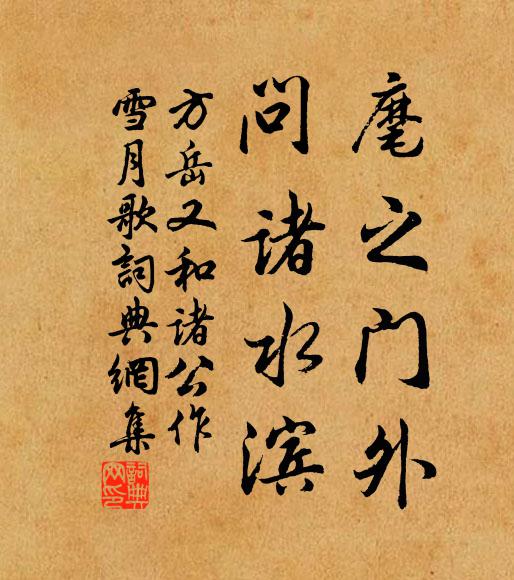 麾之门外
问诸水滨
方岳又和诸公作
雪月歌詞典網集
詞典网印